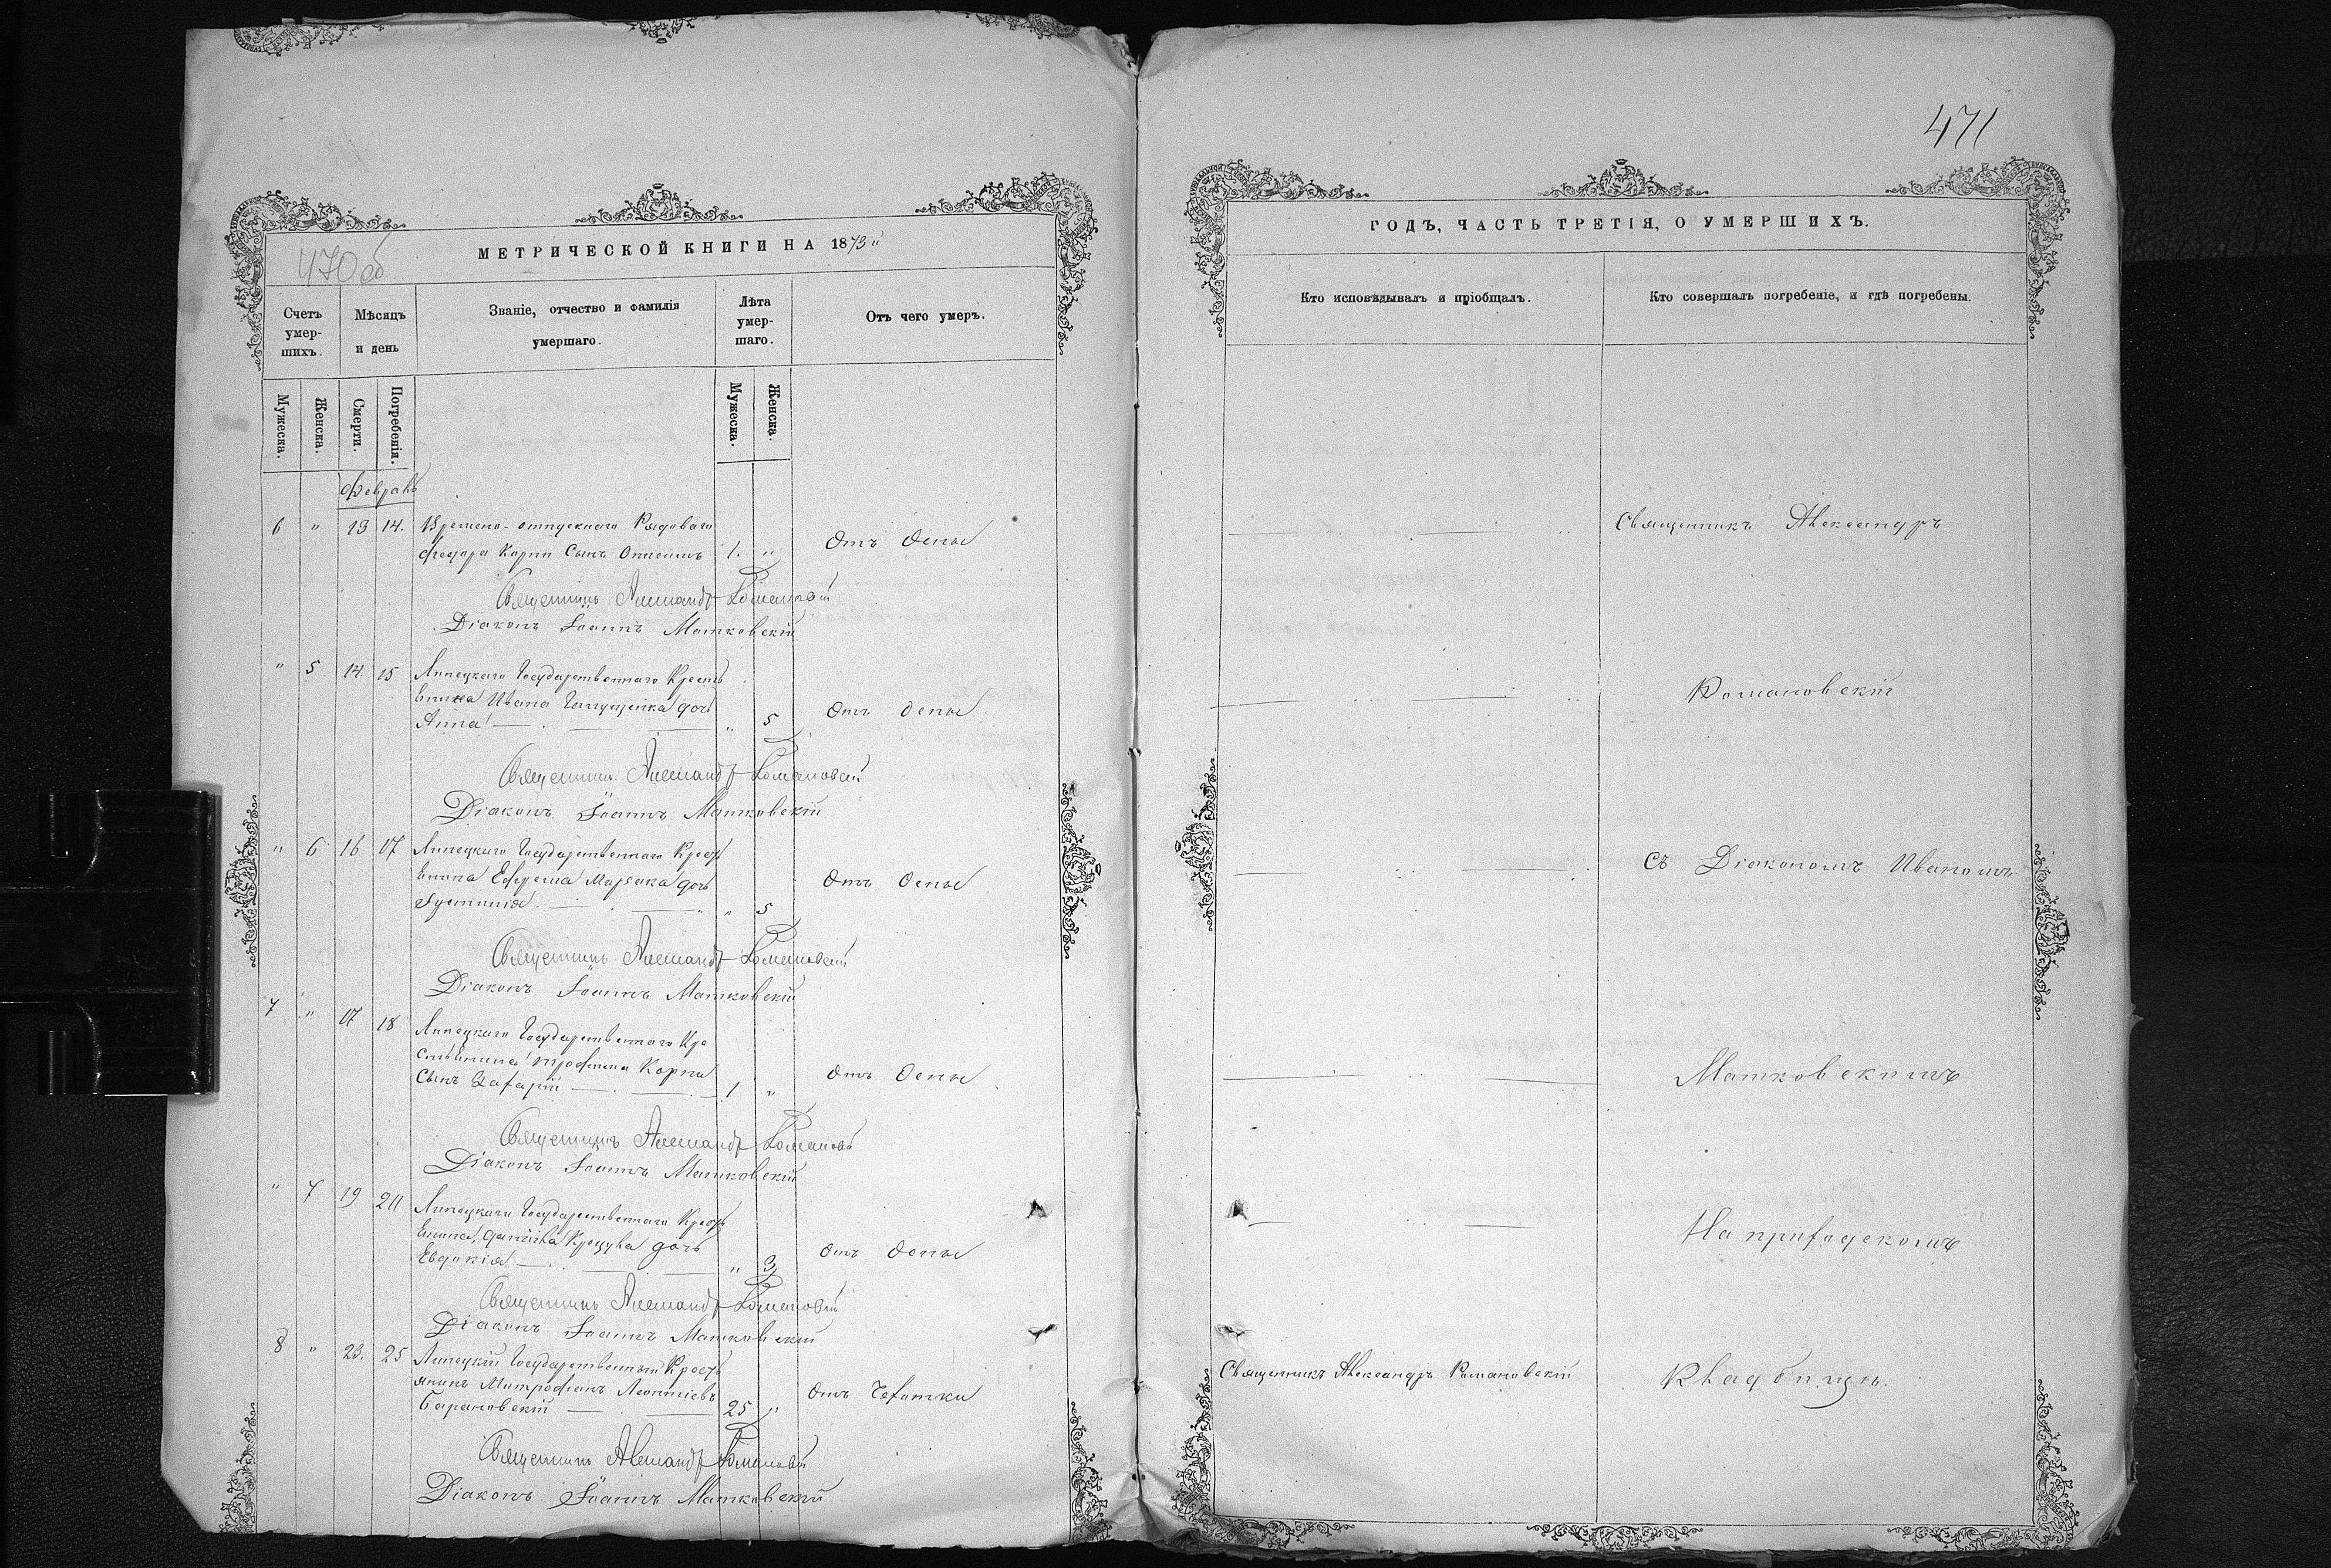 471
470 об
МЕТРИЧЕСКОЙ КНИГИ НА 1873
Счетъ умер-шихъ.
Мѣсяцъ и день
Званіе, отчество и фамилія умершаго.
Лѣта умер-шаго.
Отъ чего умеръ.
Мужеска.
Женска.
Смерти.
Погребенія.
Мужеска.
Женска.
Февраль
6 " 13 14. Временно-отпускнаго Рядоваго
Федора Корпи Сынъ Онисимъ 1. " Отъ Оспы
Священникъ Александръ Романовскій
Діаконъ Іоаннъ Матковскій
" 5 14 15 Липецкаго Государственнаго Кресть
янина Ивана дочь
Анна " 5 Отъ Оспы
Священникъ Александръ Романовскій
Діаконъ Іоаннъ Матковскій
" 6 16 17 Липецкаго Государственнаго Кресть
янина Ефрема дочь
" 5 Отъ Оспы
Священникъ Александръ Романовскій
Діаконъ Іоаннъ Матковскій
7 " 17 18 Липецкаго Государственнаго Кре
стьянина Трофима Корпи
Сынъ Захарій 1 " Отъ Оспы
Священникъ Александръ Романовскій
Діаконъ Іоаннъ Матковскій
" 7 19 20 Липецкаго Государственнаго Кресть
янина Даніила дочь
Евдокія " 3 Отъ Оспы
Священникъ Александръ Романовскій
Діаконъ Іоаннъ Матковскій
8 " 23. 25 Липецкій Государственный Кресть
янинъ Митрофанъ Леонтіевъ
Барановскій 25 " Отъ Чахотки
Священникъ Александръ Романовскій
Діаконъ Іоаннъ Матковскій
ГОДЪ, ЧАСТЬ ТРЕТІЯ, О УМЕРШИХЪ.
Кто исповѣдывалъ и пріобщалъ.
Кто совершалъ погребеніе, и гдѣ погребены.
Священникъ Александръ
Романовскій
съ Діакономъ Иваномъ
Матковскимъ
На приходскомъ
Священникъ Александръ Романовскій
кладбищѣ.